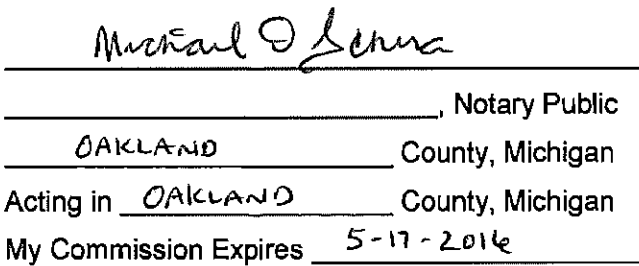 Michael D Schira
, Notary Public
OAKLAND County, Michigan
Acting in OAKLAND County, Michigan
My Commission Expires 5-17-2016